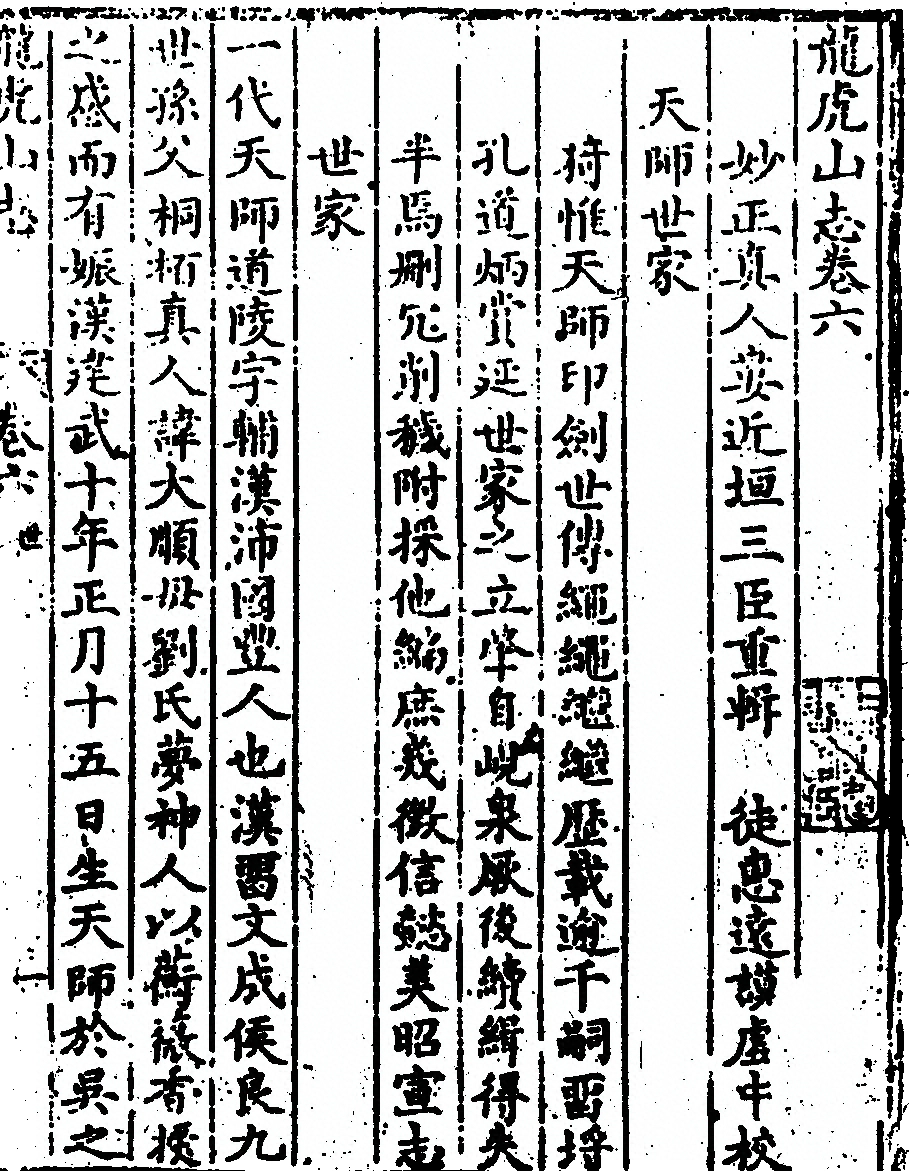 龍虎山志卷六
妙正真人婁近垣三臣重輯 徒惠遠謨虛中校
天師世家
猗惟天師印劍世傳繩繩繼繼歷載逾千嗣留埒
孔道炳賞延世家之立肇自峴泉厥後續緝得失
半焉刪冗削穢附採他編庶幾徵信懿美昭宣志
世家
一代天師道陵字輔漢沛國豐人也漢留文成侯良九
世孫父桐栢真人諱大順母劉氏夢神人以蘅薇香授
之感而有娠漢建武十年正月十五日生天師於吳之
龍虎山志 卷六 世 一